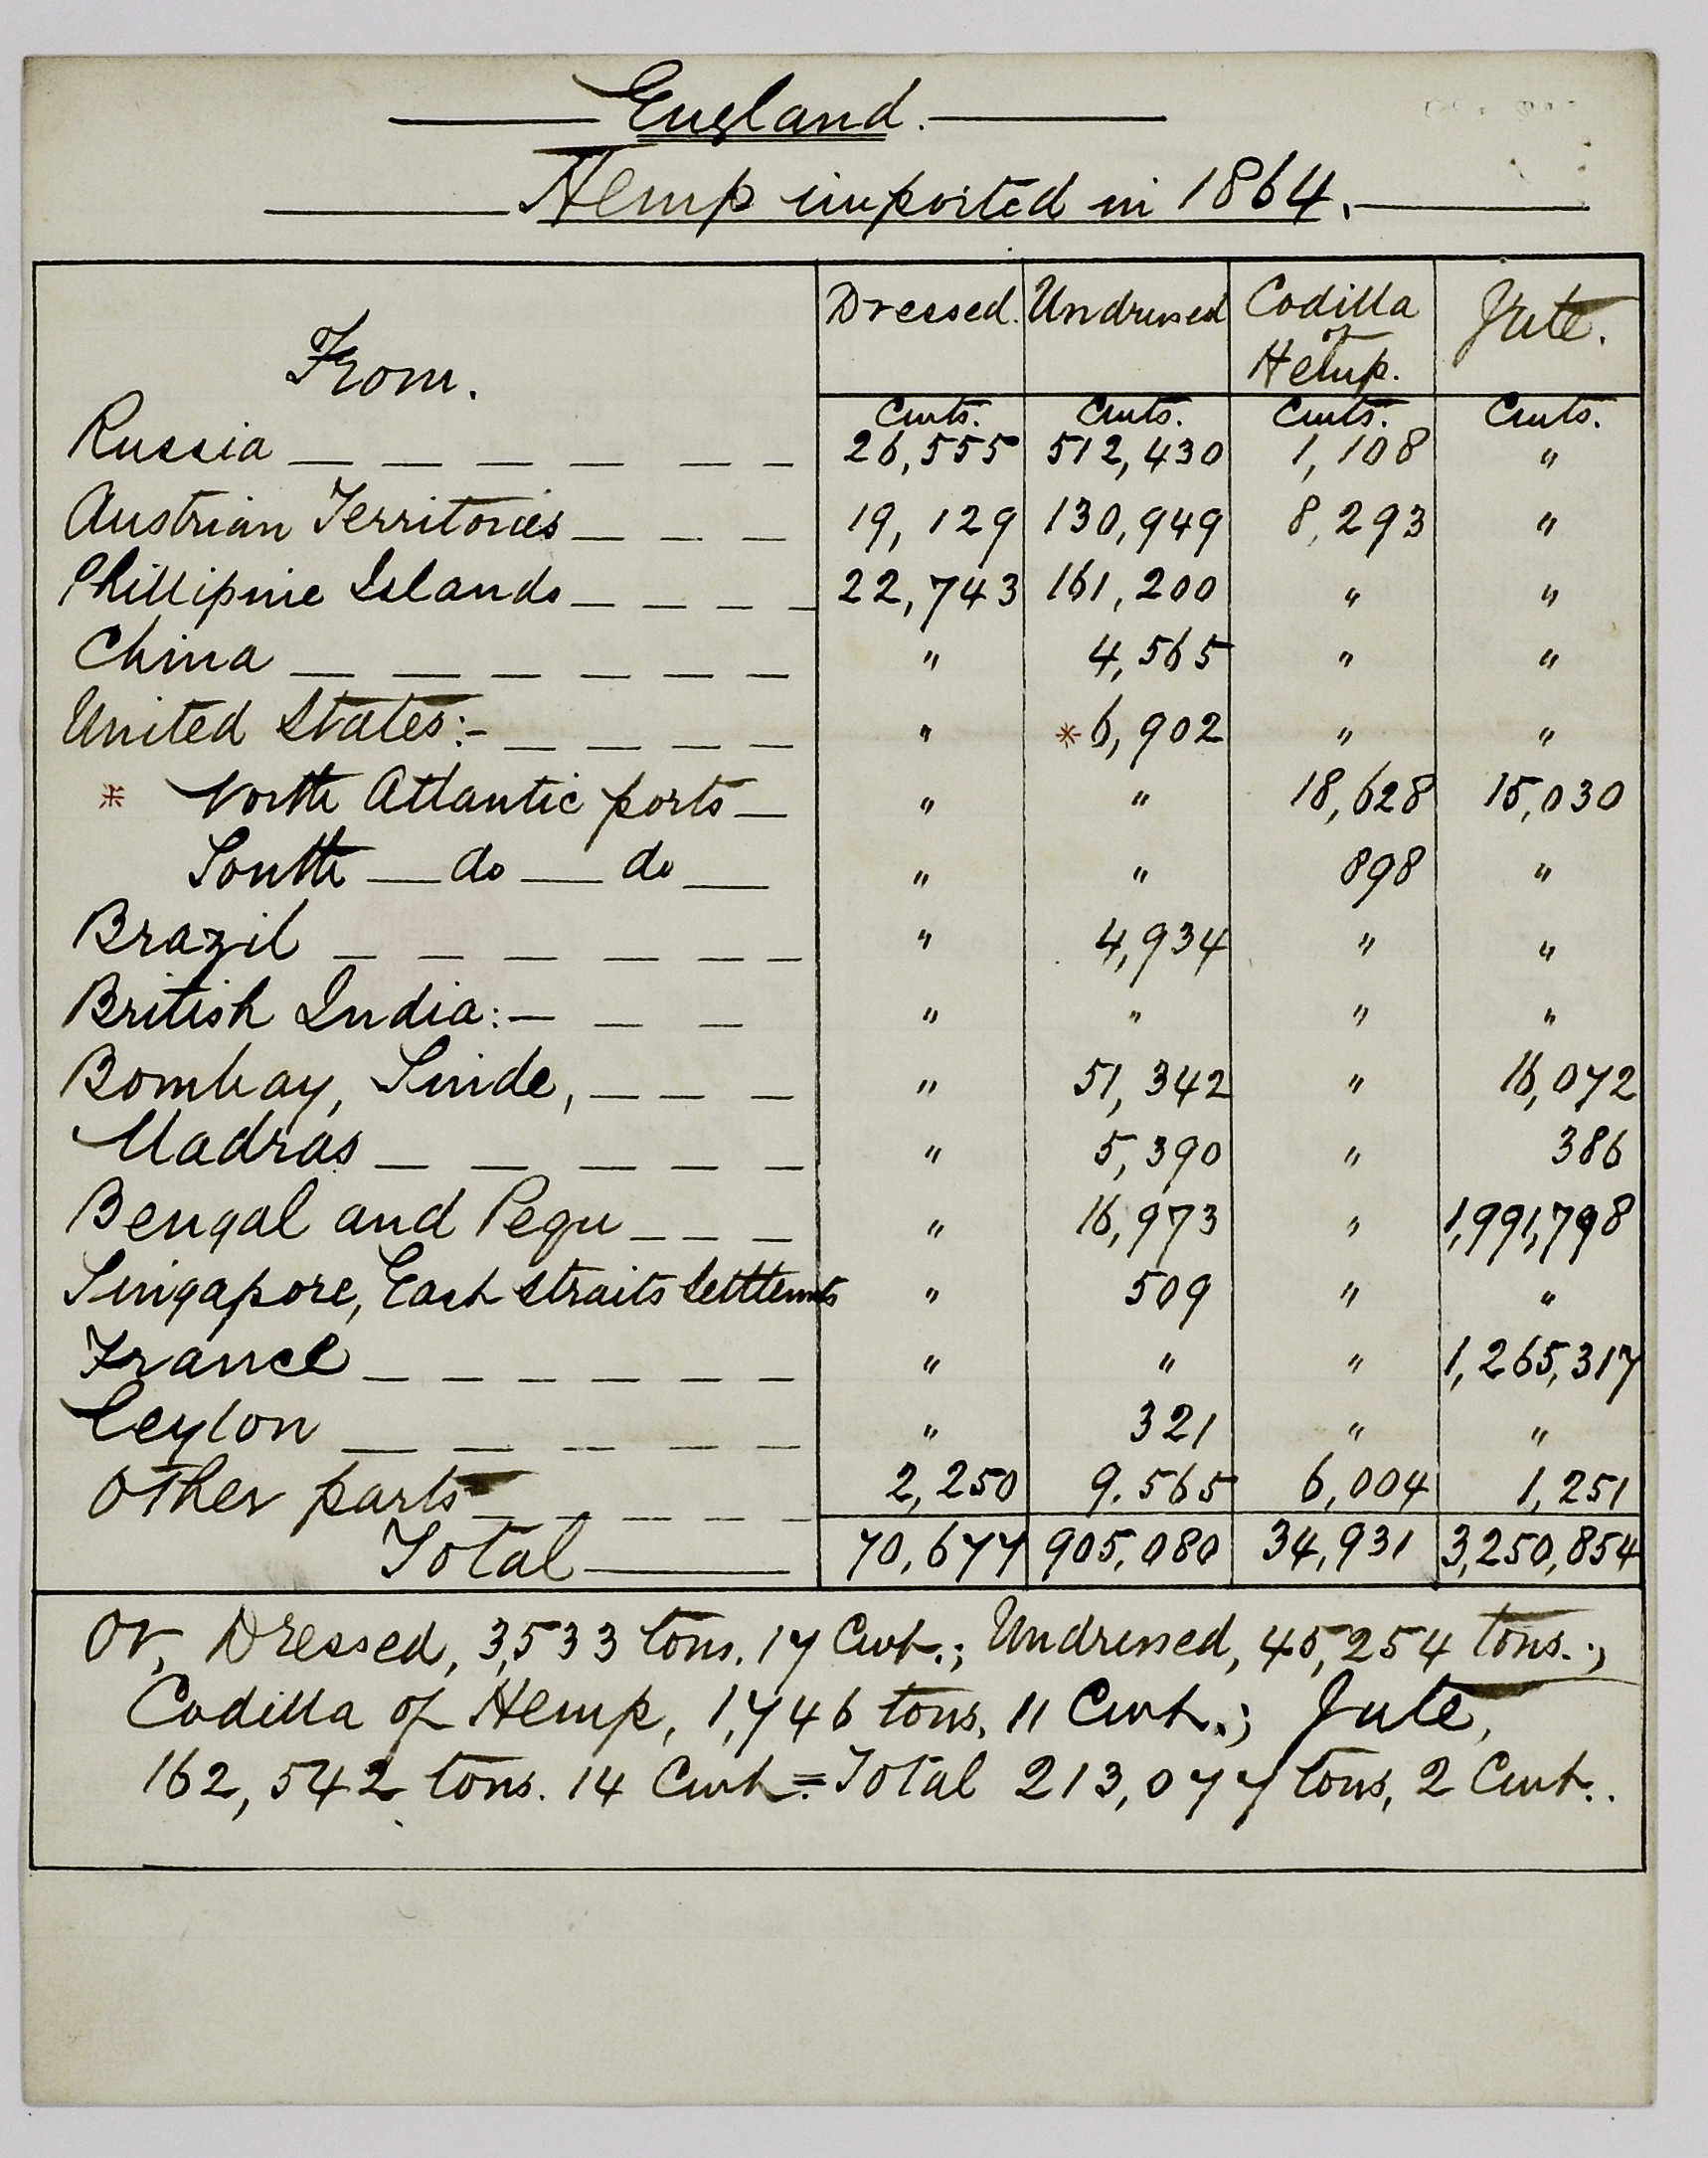 England.
Hemp imported in 1864.
From. Dressed. Undressed Codilla of Hemp. Jute.
Cwts. Cwts. Cwts. Cwts.
Russia — — — — — — 26,555 512,430 1,108 "
Austrian Territories — — — 19,129 130,949 8,293 "
Phillipine Islands — — — — 22,743 161,200 " "
China — — — — — — " 4,565 " "
United States:- — — — — " * 6,902 " "
* North Atlantic ports — " " 18,628 15,030
South — do — do — " " 898 "
Brazil — — — — — — " 4,934 " "
British India:— — — " " " "
Bombay, Sinde, — — — " 51,342 " 16,072
Madras — — — — — " 5,390 " 386
Bengal and Pegu — — — " 16,973 " 1,991,798
Singapore, East straits settlemts " 509 " "
France — — — — — — " " " 1,265,317
Ceylon — — — — — " 321 " "
Other parts — — — — — 2,250 9.565 6,004 1,251
Total — 70,677 905,080 34,931 3,250,854
Or, Dressed, 3,533 tons. 17 Cwt.; Undressed, 45,254 tons.;
Codilla of Hemp, 1,746 tons. 11 Cwt.; Jute,
162,542 tons. 14 Cwt. = Total 213,077 tons, 2 Cwt..